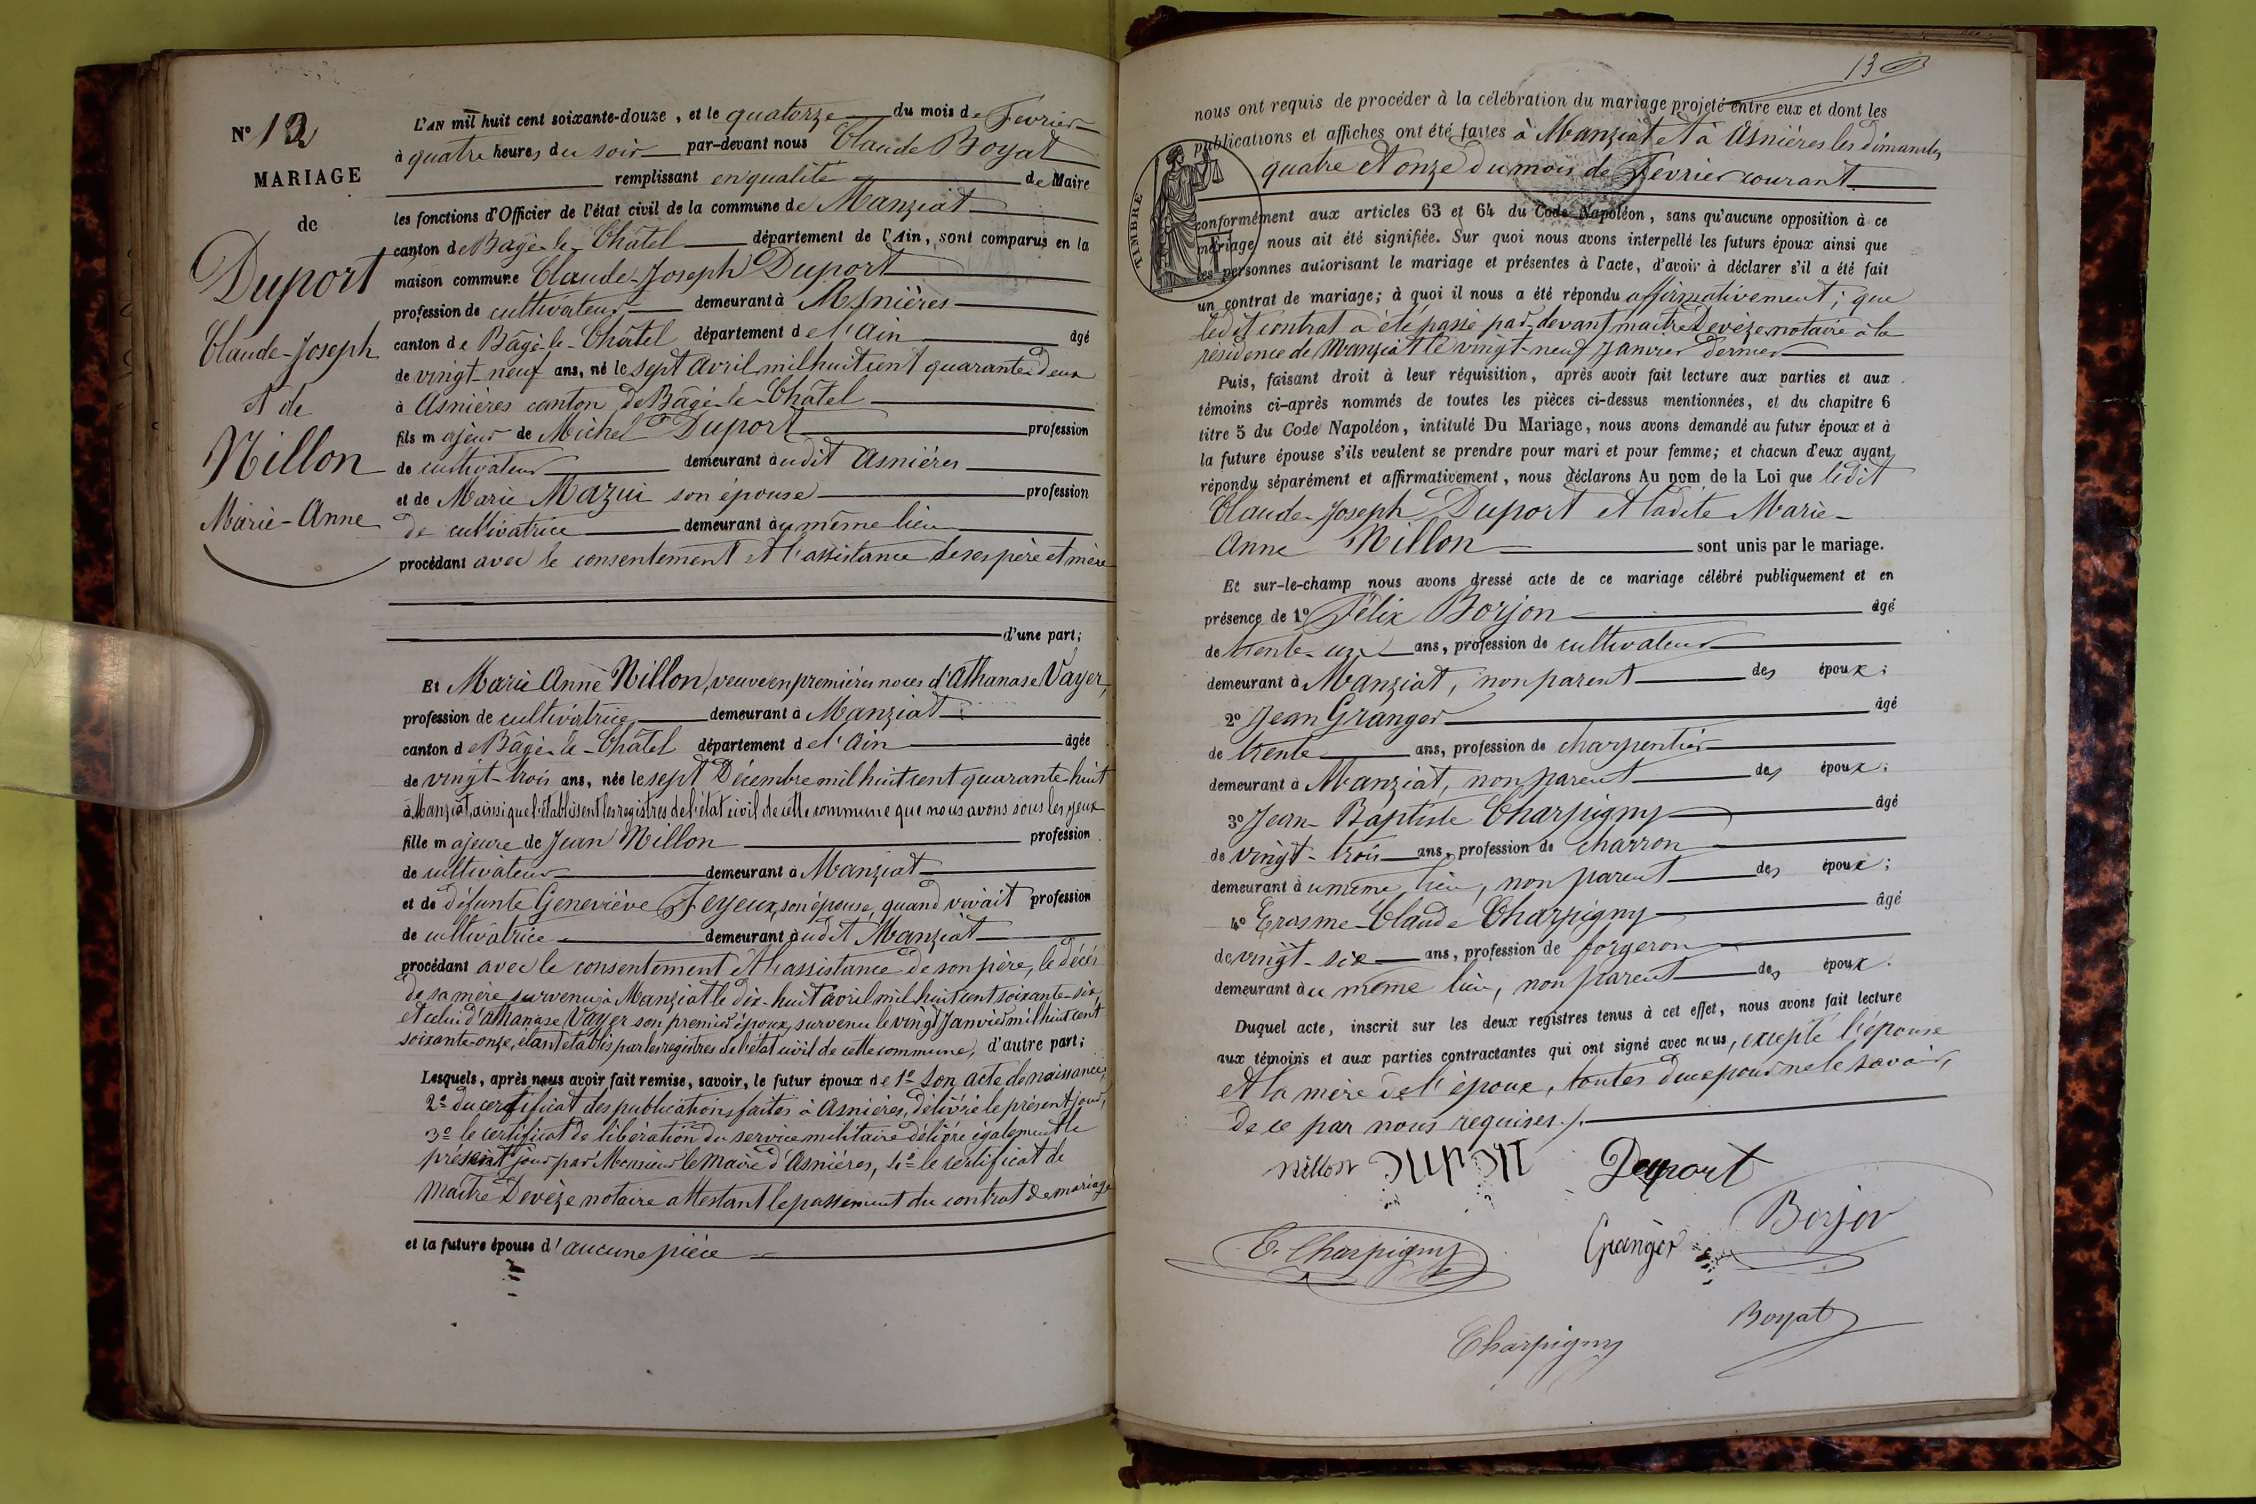 N° 12
MARIAGE
de
Duport
Claude-Joseph
et de
Nillon
Marie-Anne
L'AN mil huit cent soixante-douze, et le quatorze du mois de Fevrier
à quatre heures du soir par-devant nous Claude Boyat
remplissant en qualité de Maire
les fonctions d'Officier de l'état civil de la commune de Manziat
canton de Bâgé-le-Châtel département de l'Ain, sont comparus en la
maison commune Claude-Joseph Duport
profession de cultivateur demeurant à Asnières
canton de Bâgé-le-Châtel département de l'Ain âgé
de vingt-neuf ans, né le sept Avril mil huit cent quarante-deux
à Asnières canton de Bâgé-le-Châtel
fils majeur de Michel Duport profession
de cultivateur demeurant audit Asnières
et de Marie Mazui son épouse profession
de cultivatrice demeurant au même lieu
procédant avec le consentement et l'assistance de ses père et mère
d'une part;
Et Marie Anne Nillon, veuve en premières noces d'Athanase Vayer,
profession de cultivatrice demeurant à Manziat
canton de Bâgé-le-Châtel département de l'Ain âgée
de vingt-trois ans, née le sept Décembre mil huit cent quarante-huit
à Manziat, ainsi que l'établissent les registres de l'état civil de cette commune que nous avons sous les yeux
fille majeure de Jean Nillon profession
de cultivateur demeurant à Manziat
et de défunte Geneviève Feyeux, son épouse, quand vivait profession
de cultivatrice demeurant audit Manziat
procédant avec le consentement et l'assistance de son père, le décès
de sa mère survenu à Manziat le dix-huit avril mil huit cent soixante-six,
et celui d'Athanase Vayer son premier époux, survenu le vingt Janvier mil huit cent
soixante-onze, étant établis par les registres de l'état civil de cette commune, d'autre part;
Lesquels, après nous avoir fait remise, savoir, le futur époux de 1° son acte de naissance,
2° du certificat des publications faites à Asnières, délivré le présent jour,
3° le certificat de libération du service militaire délivré également le
présent jour par Monsieur le Maire d'Asnières, 4° le certificat de
Maître Devèze notaire attestant le passement du contrat de mariage
et la future épouse d'aucune pièce
13
nous ont requis de procéder à la célébration du mariage projeté entre eux et dont les
publications et affiches ont été faites à Manziat et à Asnières les dimanches
quatre et onze du mois de Fevrier courant
TIMBRE
conformément aux articles 63 et 64 du Code Napoléon, sans qu'aucune opposition à ce
mariage nous ait été signifiée. Sur quoi nous avons interpellé les futurs époux ainsi que
les personnes autorisant le mariage et présentes à l'acte, d'avoir à déclarer s'il a été fait
un contrat de mariage; à quoi il nous a été répondu affirmativement; que
ledit contrat a été passé par-devant maître Devèze notaire à la
résidence de Manziat le vingt-neuf Janvier dernier
Puis, faisant droit à leur réquisition, après avoir fait lecture aux parties et aux
témoins ci-après nommés de toutes les pièces ci-dessus mentionnées, et du chapitre 6
titre 5 du Code Napoléon, intitulé Du Mariage, nous avons demandé au futur époux et à
la future épouse s'ils veulent se prendre pour mari et pour femme; et chacun d'eux ayant
répondu séparément et affirmativement, nous déclarons Au nom de la Loi que ledit
Claude-Joseph Duport et ladite Marie-
Anne Nillon sont unis par le mariage.
Et sur-le-champ nous avons dressé acte de ce mariage célébré publiquement et en
présence de 1° Félix Borjon âgé
de trente-un ans, profession de cultivateur
demeurant à Manziat, non parent des époux;
2° Jean Granger âgé
de trente ans, profession de charpentier
demeurant à Manziat, non parent des époux;
3° Jean-Baptiste Charpigny âgé
de vingt-trois ans, profession de charron
demeurant au même lieu, non parent des époux;
4° Erasme-Claude Charpigny âgé
de vingt-six ans, profession de forgeron
demeurant au même lieu, non parent des époux.
Duquel acte, inscrit sur les deux registres tenus à cet effet, nous avons fait lecture
aux témoins et aux parties contractantes qui ont signé avec nous, excepté l'épouse
et la mère de l'époux, toutes deux pour ne le savoir,
de ce par nous requises.
Nillon Duport
Borjon
E. Charpigny Granger
Boyat
Charpigny